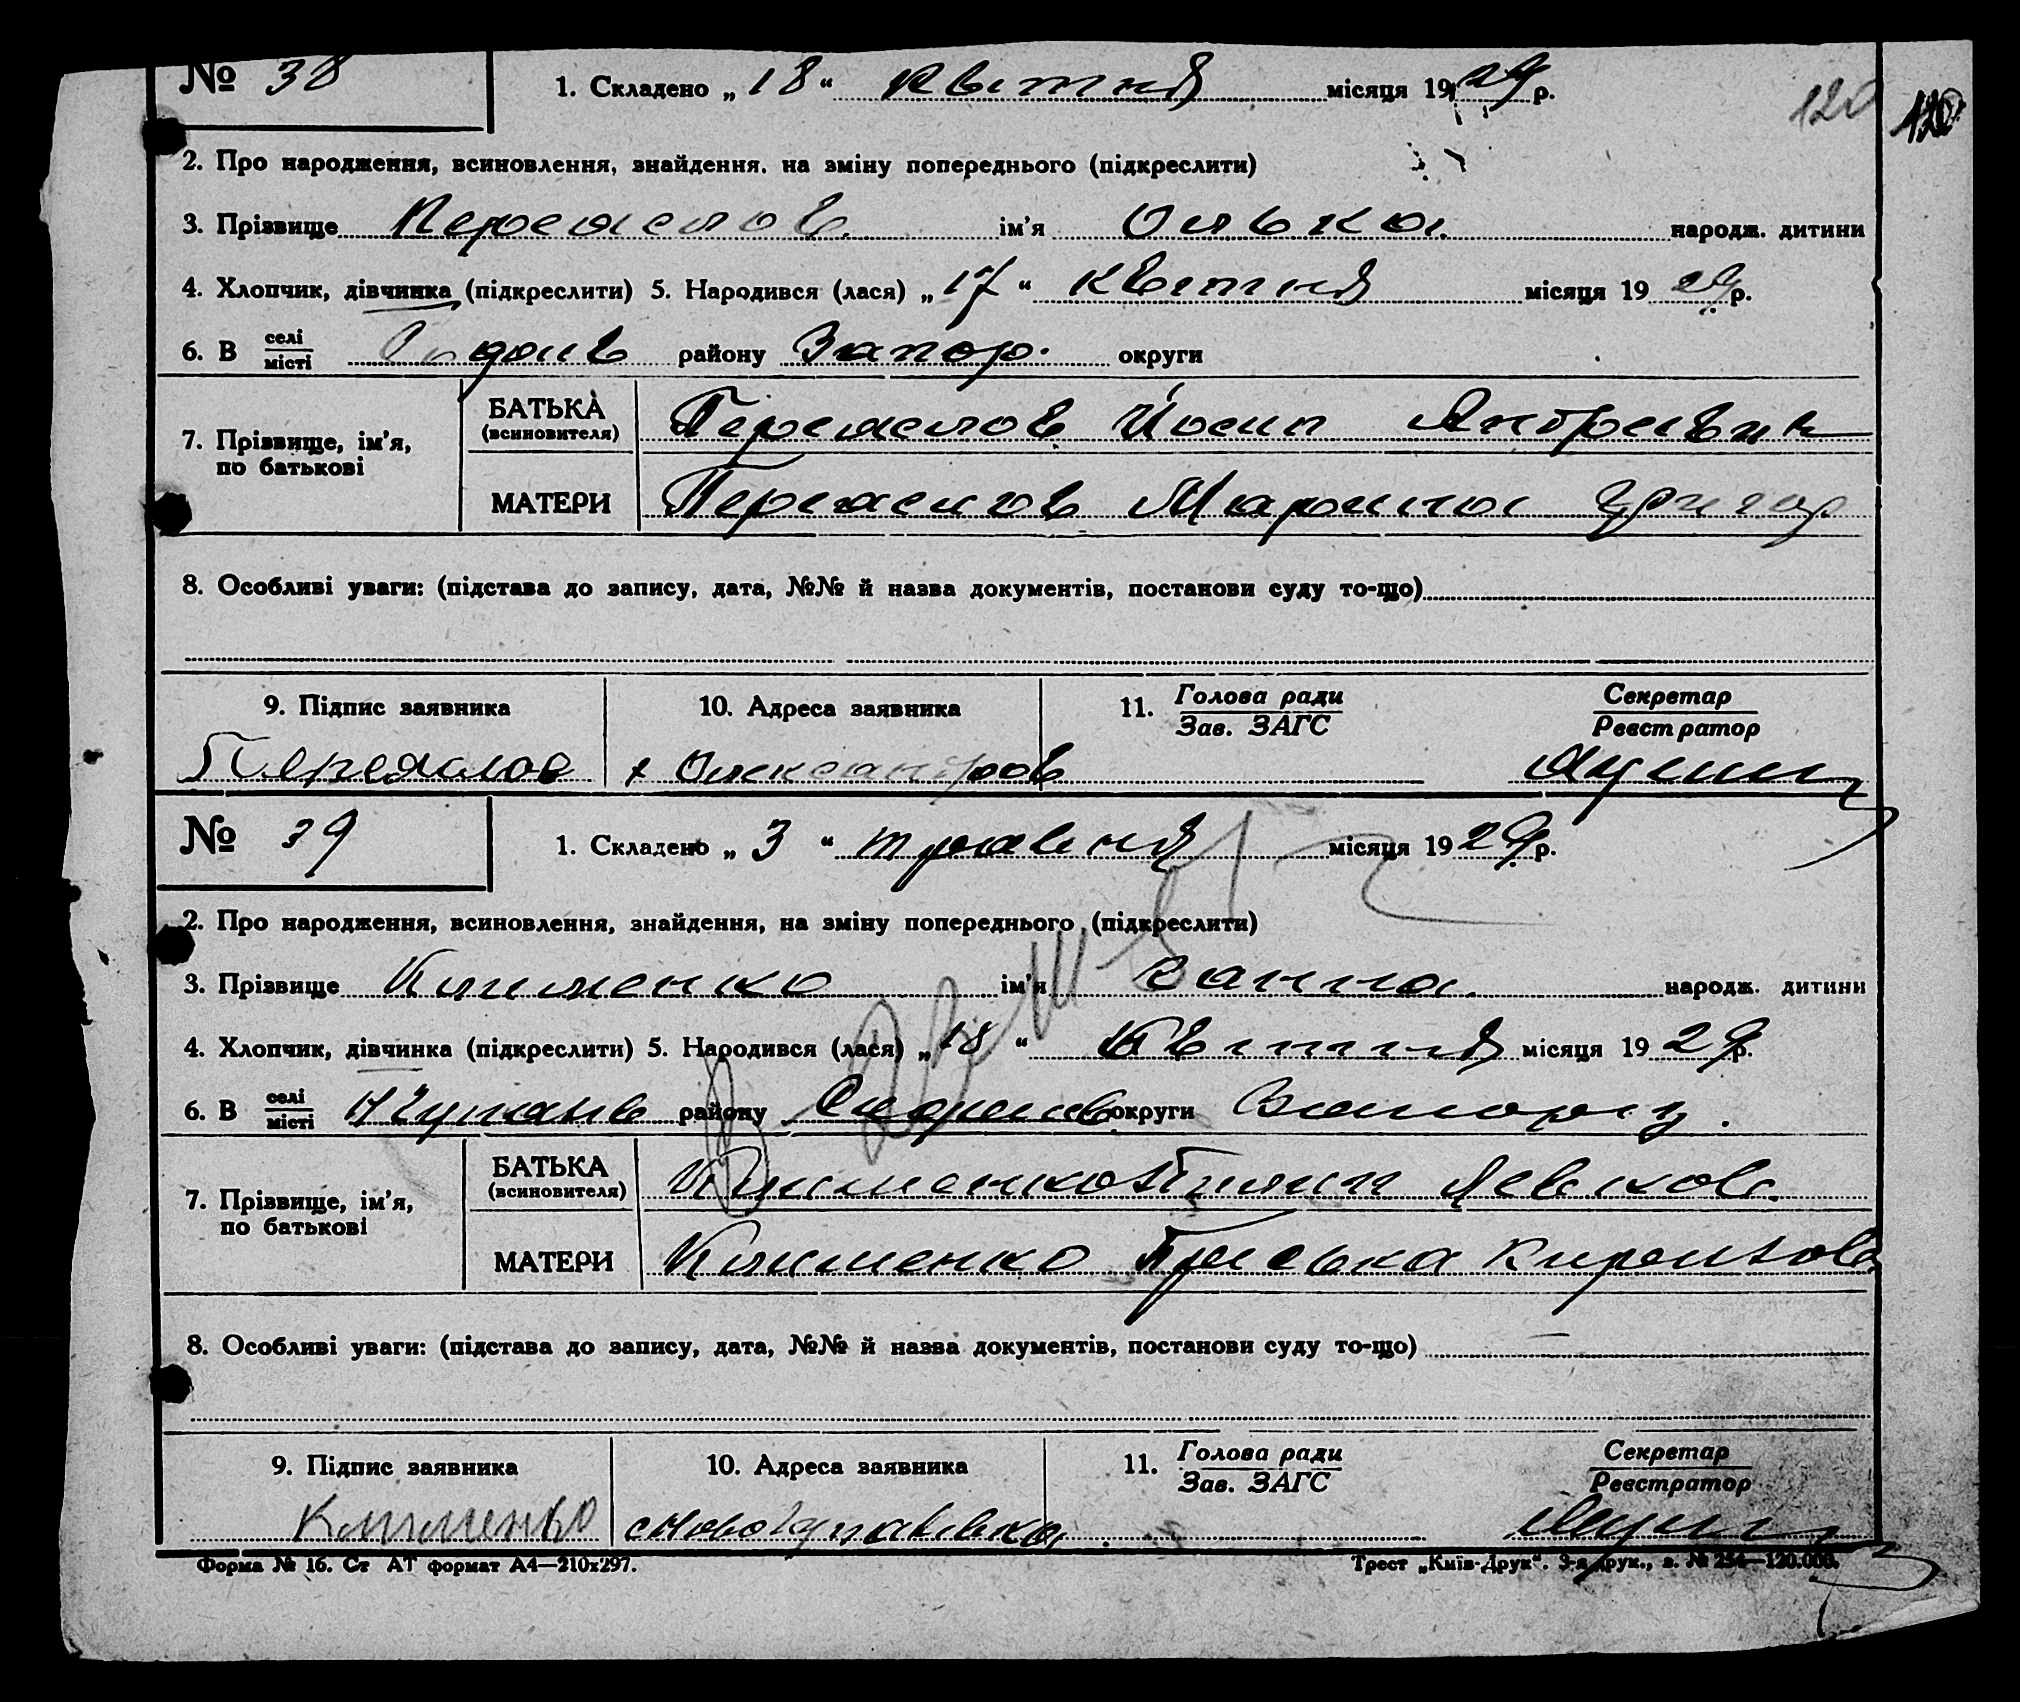 № 38 1. Складено „ 18 “ квітня місяця 1929 р.
120 120
2. Про народження, всиновлення, знайдення, на зміну попереднього (підкреслити)
3. Прізвище Переяслов ім’я Олька народж. дитини
4. Хлопчик, дівчинка (підкреслити) 5. Народився (лася) „ 17 “ квітня місяця 1929 р.
6. В селі місті району Запор. округи
7. Прізвище, ім’я, по батькові
БАТЬКА (всиновителя) Переяслов Йосип Андреевич
МАТЕРИ Переяслов Марина Григор
8. Особливі уваги: (підстава до запису, дата, №№ й назва документів, постанови суду то-що)
9. Підпис заявника 10. Адреса заявника 11. Голова ради Зав. ЗАГС Секретар Реєстратор
Переяслов х Олександров
№ 39 1. Складено „ 3 “ травня місяця 1929 р.
2. Про народження, всиновлення, знайдення, на зміну попереднього (підкреслити)
3. Прізвище Клименко ім’я Ганна народж. дитини
4. Хлопчик, дівчинка (підкреслити) 5. Народився (лася) „ 18 “ квітня місяця 1929 р.
6. В селі місті району округи Запоріз.
7. Прізвище, ім’я, по батькові
БАТЬКА (всиновителя) Клименко Пилип
МАТЕРИ Клименко Приська Кирилов
8. Особливі уваги: (підстава до запису, дата, №№ й назва документів, постанови суду то-що)
9. Підпис заявника 10. Адреса заявника 11. Голова ради Зав. ЗАГС Секретар Реєстратор
Клименко
Форма № 16. Ст АТ формат А4—210х297. Трест „Київ-Друк“. 3-я друк., з. № 254—120.000.